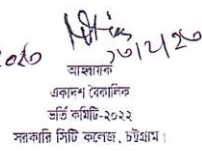 ২০/২/২৩
আহ্বায়ক
একাদশ বৈকালিক
ভর্তি কমিটি-২০২২
সরকারি সিটি কলেজ, চট্টগ্রাম।